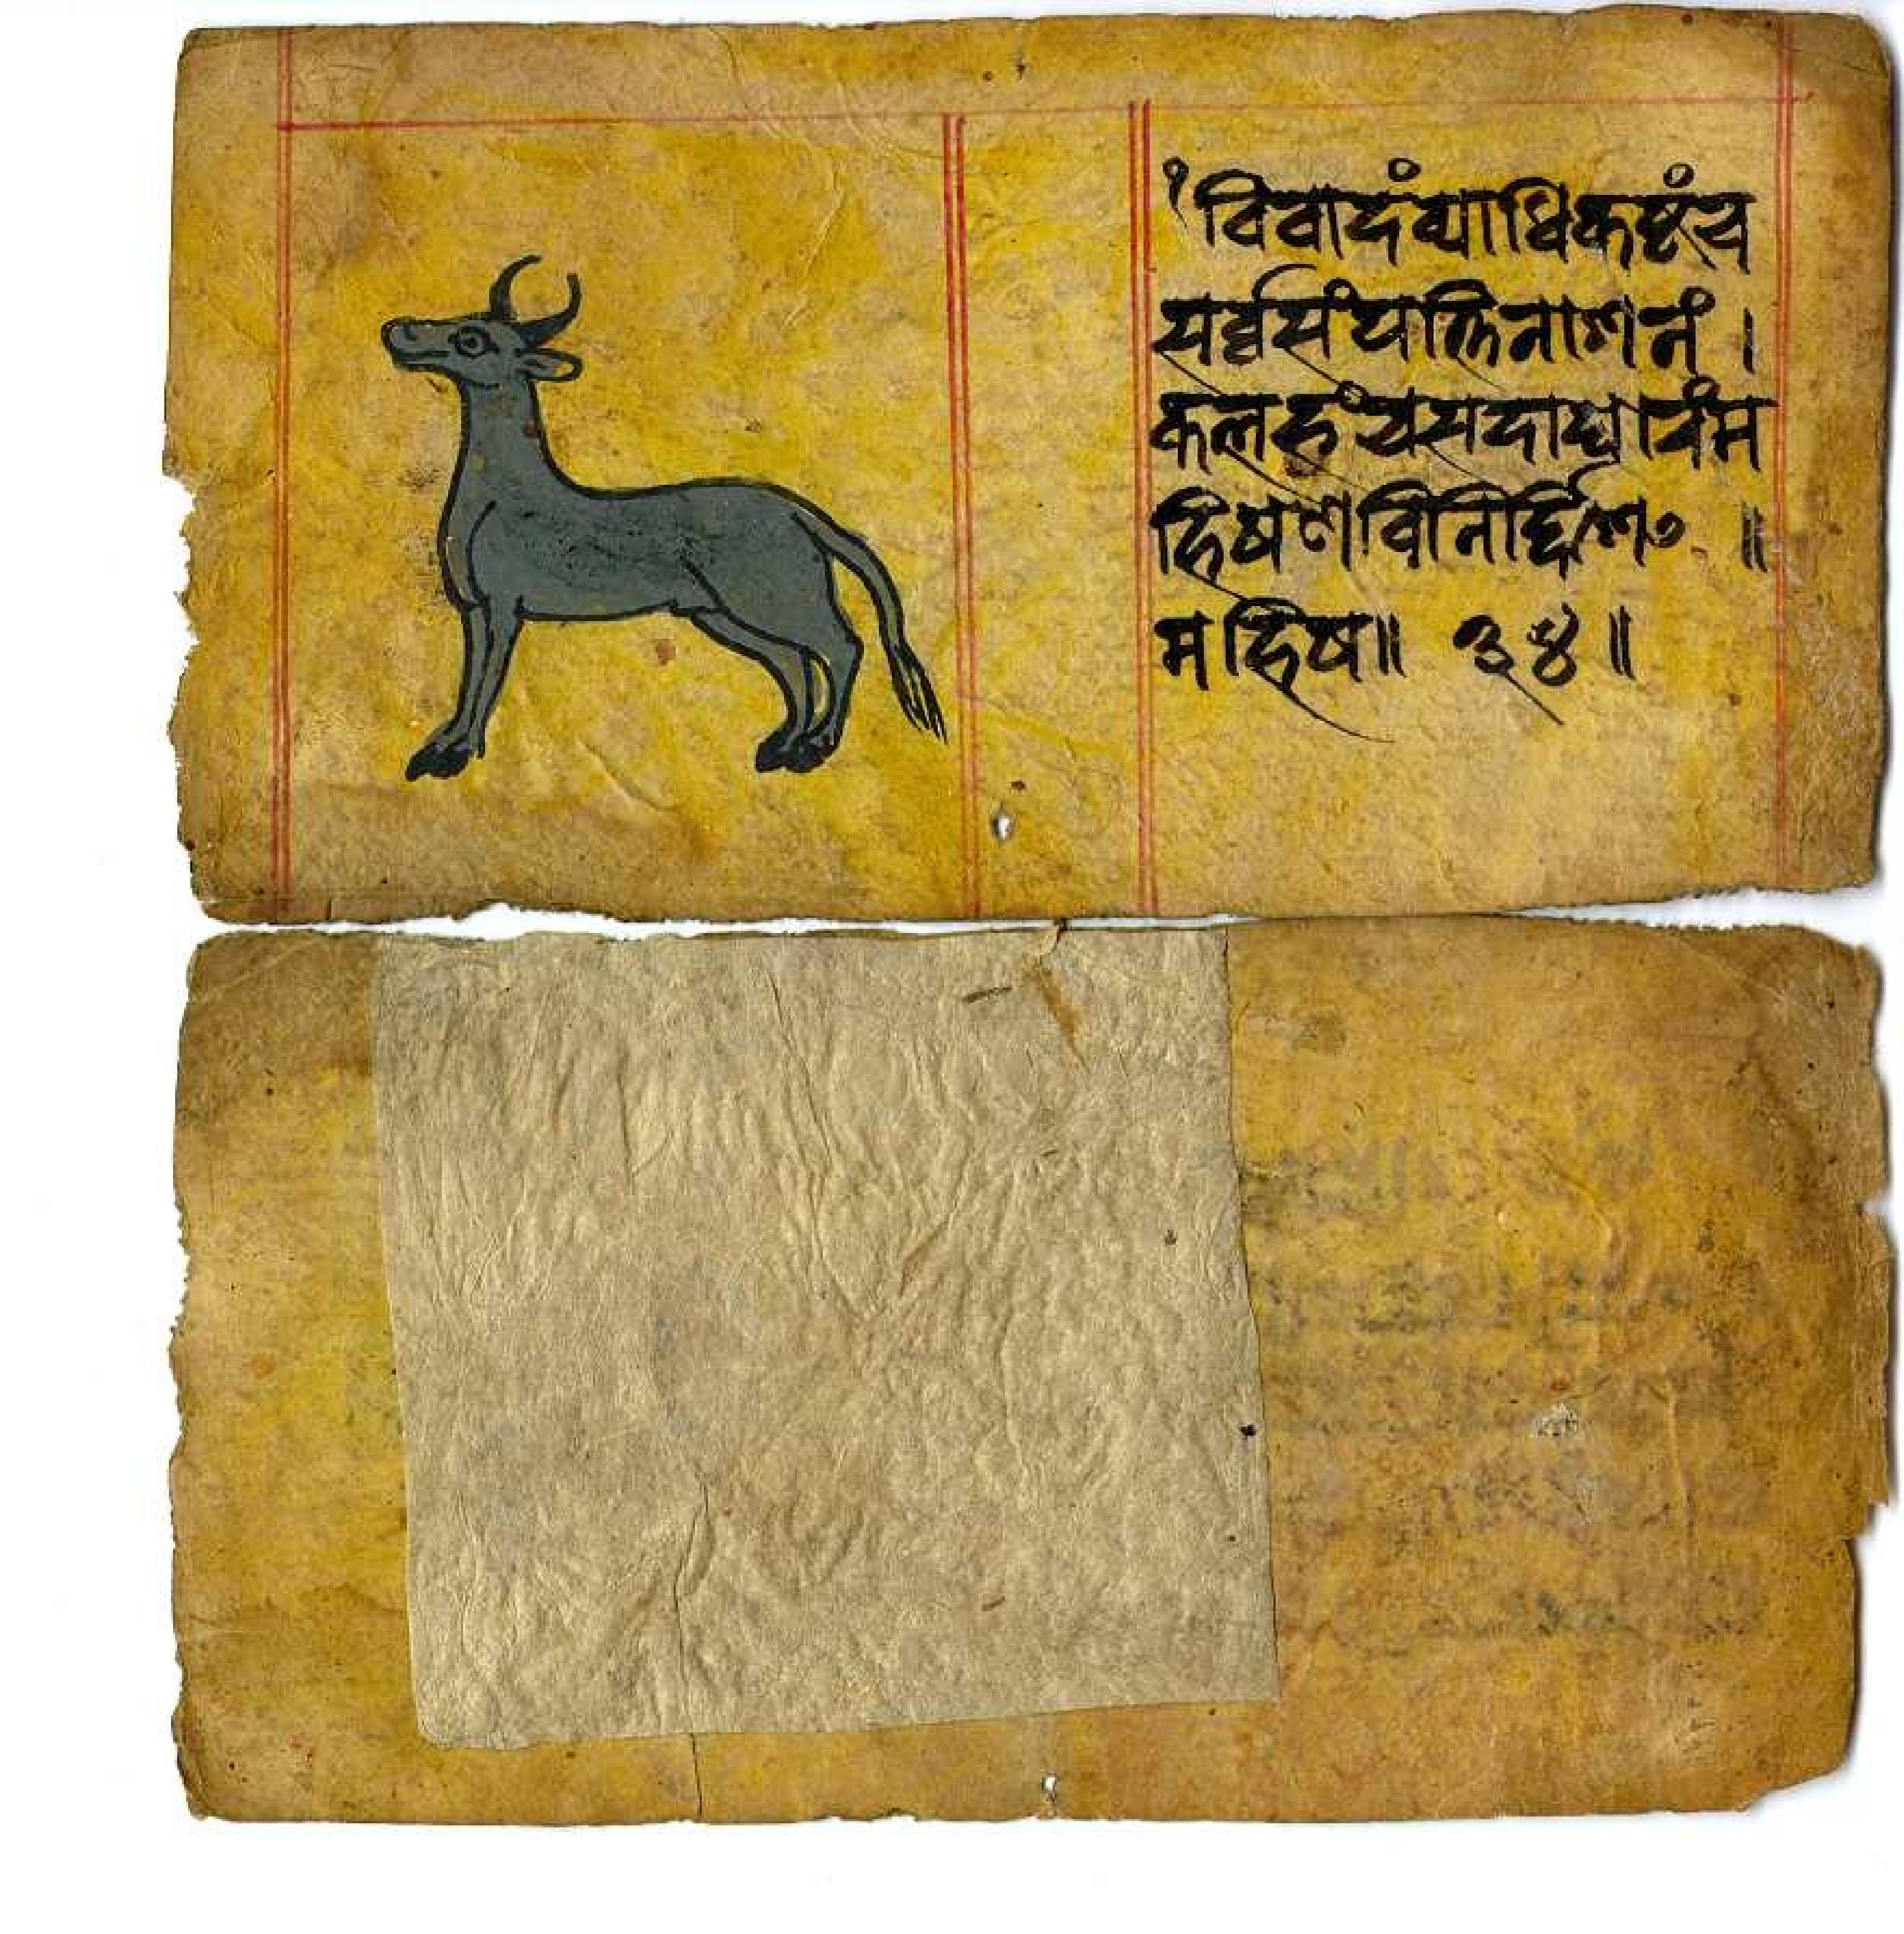 १विवादंव्याधिकष्टंच
सर्व्वसंपत्तिनाशनं ।
कलहंचसदाघोरंम
हिषणविनिर्द्दिशेत् ॥
महिष॥ ३४॥